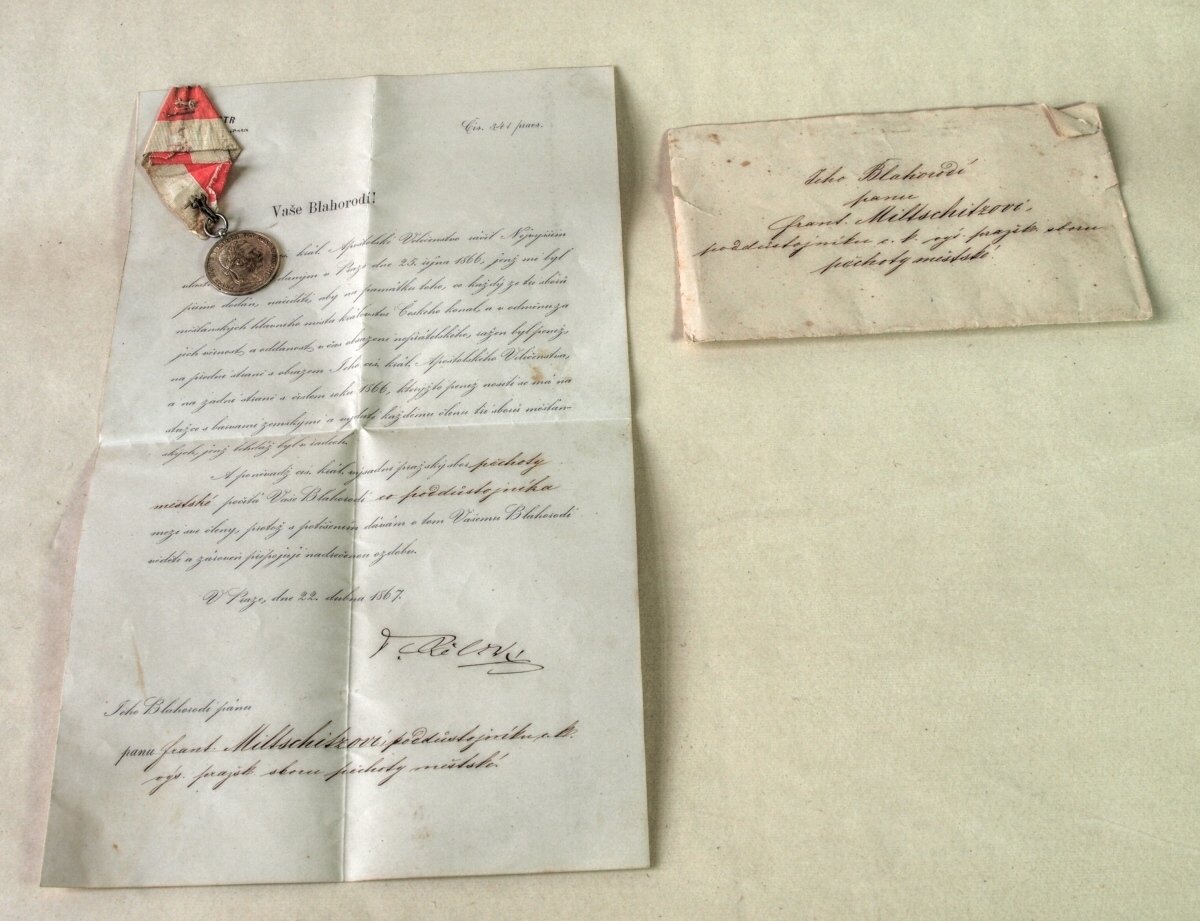 Čís. 341 praes.
Vaše Blahorodí!
král. Apoštolské Veličenstvo ráčil Nejvyšším
daným v Praze dne 25. října 1866, jenž mi byl
přímo dodán, naříditi, aby na památku toho, co každý ze tří sborů
měšťanských hlavního města království Českého konal, a v odměnu za
jich věrnost a oddanost v čas obsazení nepřátelského, ražen byl peníz,
na přední straně s obrazem Jeho cís. král. Apoštolského Veličenstva,
a na zadní straně s číslem roku 1866, kterýžto peníz nositi se má na
stužce s barvami zemskými a vydati každému členu tří sborů měšťan-
ských, jenž tehdáž byl v řadech.
A poněvadž cís. král. výsadní pražský sbor pěchoty
městské počítá Vaše Blahorodí co poddůstojníka
mezi své členy, protož s potěšením dávám o tom Vašemu Blahorodí
věděti a zároveň připojuji nadřečenou ozdobu.
V Praze, dne 22. dubna 1867.
Jeho Blahorodí pánu
panu frant. Miltschitzovi, poddůstojníku c. k.
výs. pražsk. sboru pěchoty městské.
Jeho Blahorodí
panu
frant. Miltschitzovi,
poddůstojníku c. k. výs. pražsk. sboru
pěchoty městské